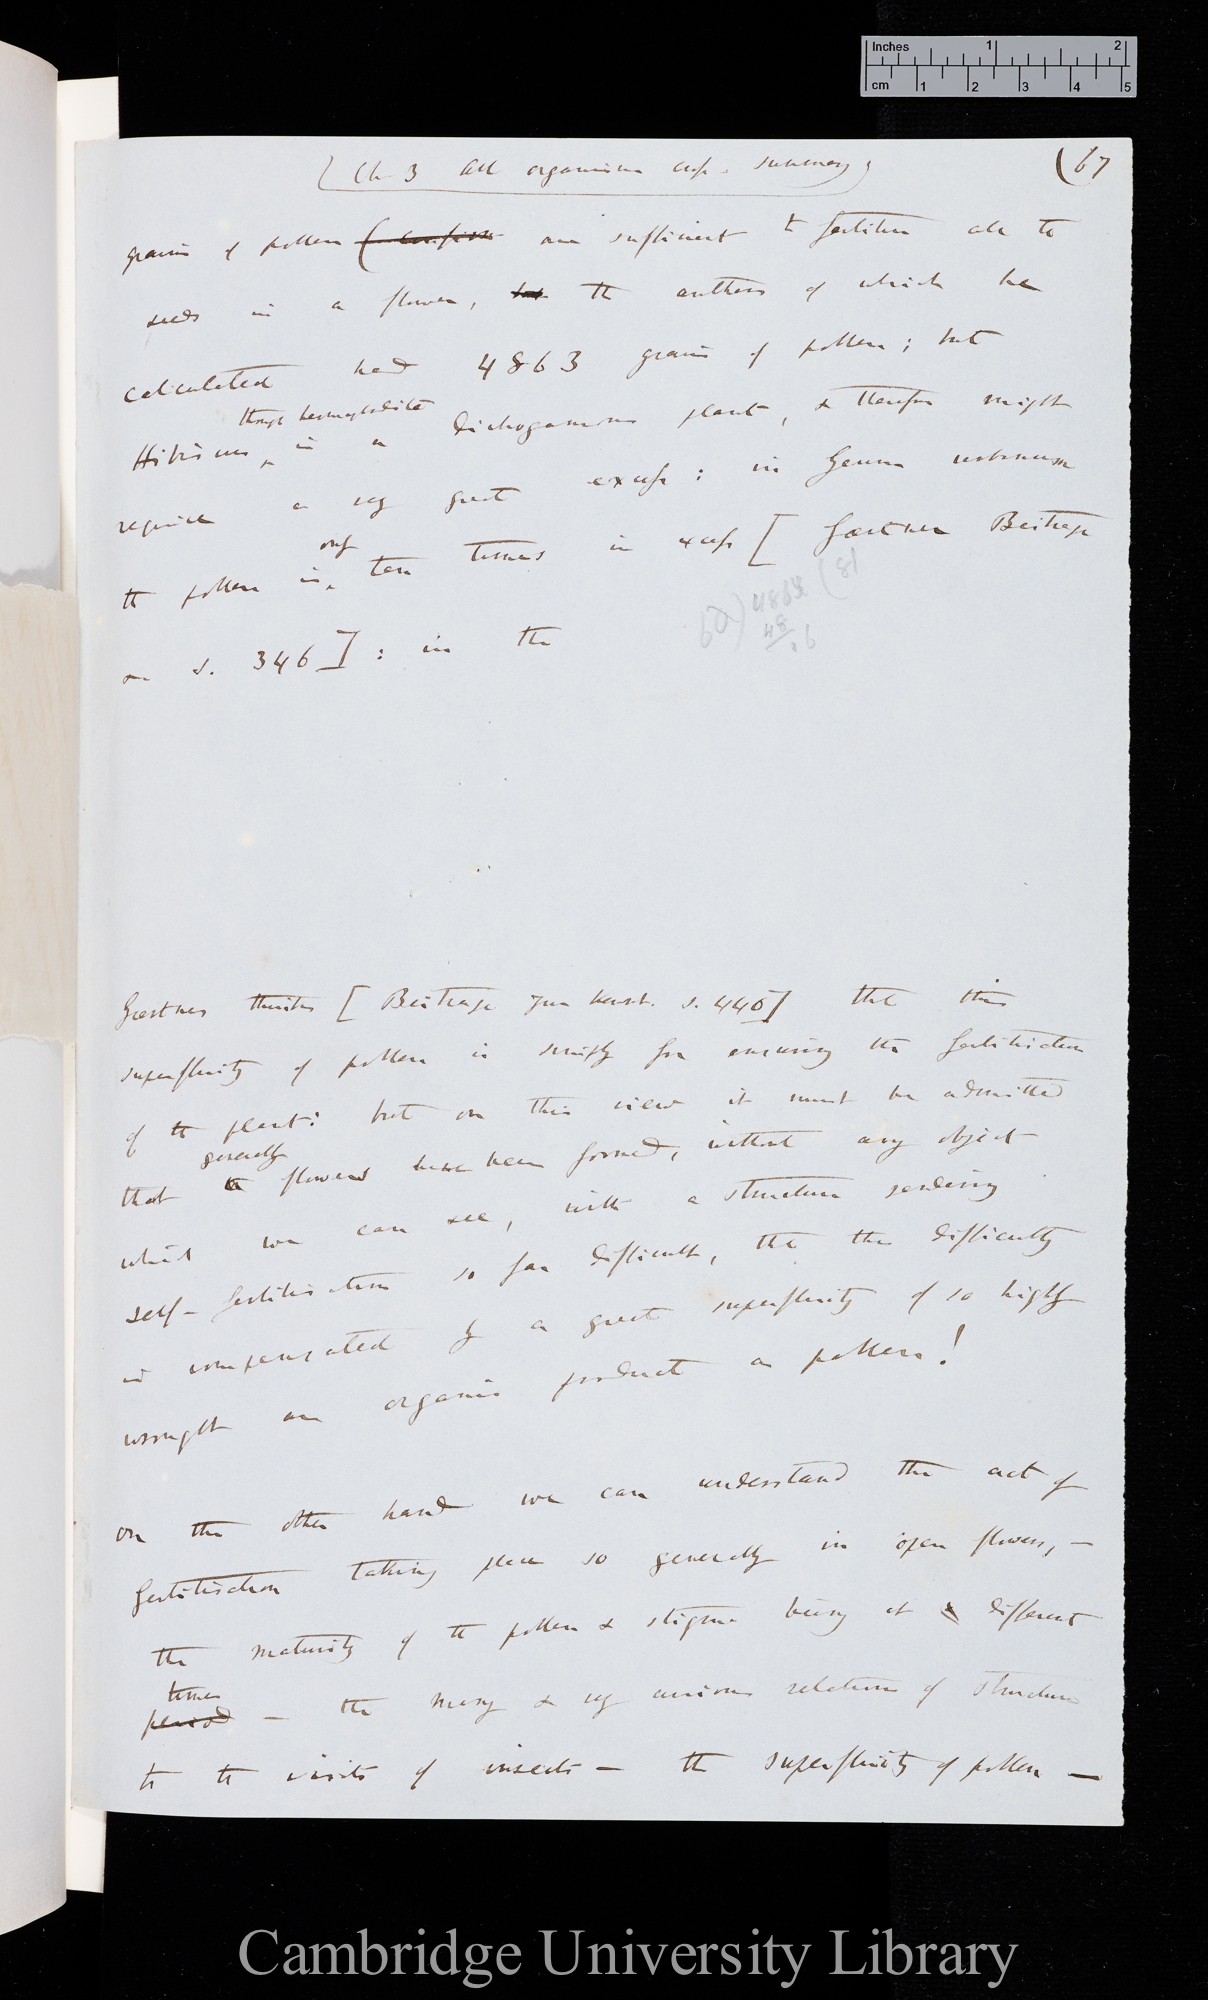 Inches 1 2
cm 1 2 3 4 5
(Ch. 3 All organisms cross. Summary)
(67
grains of pollen are sufficient to fertilise all the
seeds in a flower, the anthers of which he
calculated had 4863 grains of pollen; but
though hermaphrodite
Hibiscus, is a dichogamous plant, & therefore might
require a very great excess: in Geum urbanum
only
the pollen is ten times in excess [Gærtner Beitrage
s. 346]: in the
60) 4863 (81
48
Gærtner thinks [Beitrage zur Kennt. s. 440] that this
superfluity of pollen is simply for ensuring the fertilisation
of the plant: but on this view it must be admitted
generally
that flowers have been formed, without any object
which we can see, with a structure rendering
self-fertilisation so far difficult, that this difficulty
is compensated by a great superfluity of so highly
wrought an organic product as pollen!
on the other hand we can understand the act of
fertilisation taking place so generally in open flowers, —
the maturity of the pollen & stigma being at different
times
period — the many & very curious relations of structure
to the visits of insects — the superfluity of pollen —
Cambridge University Library